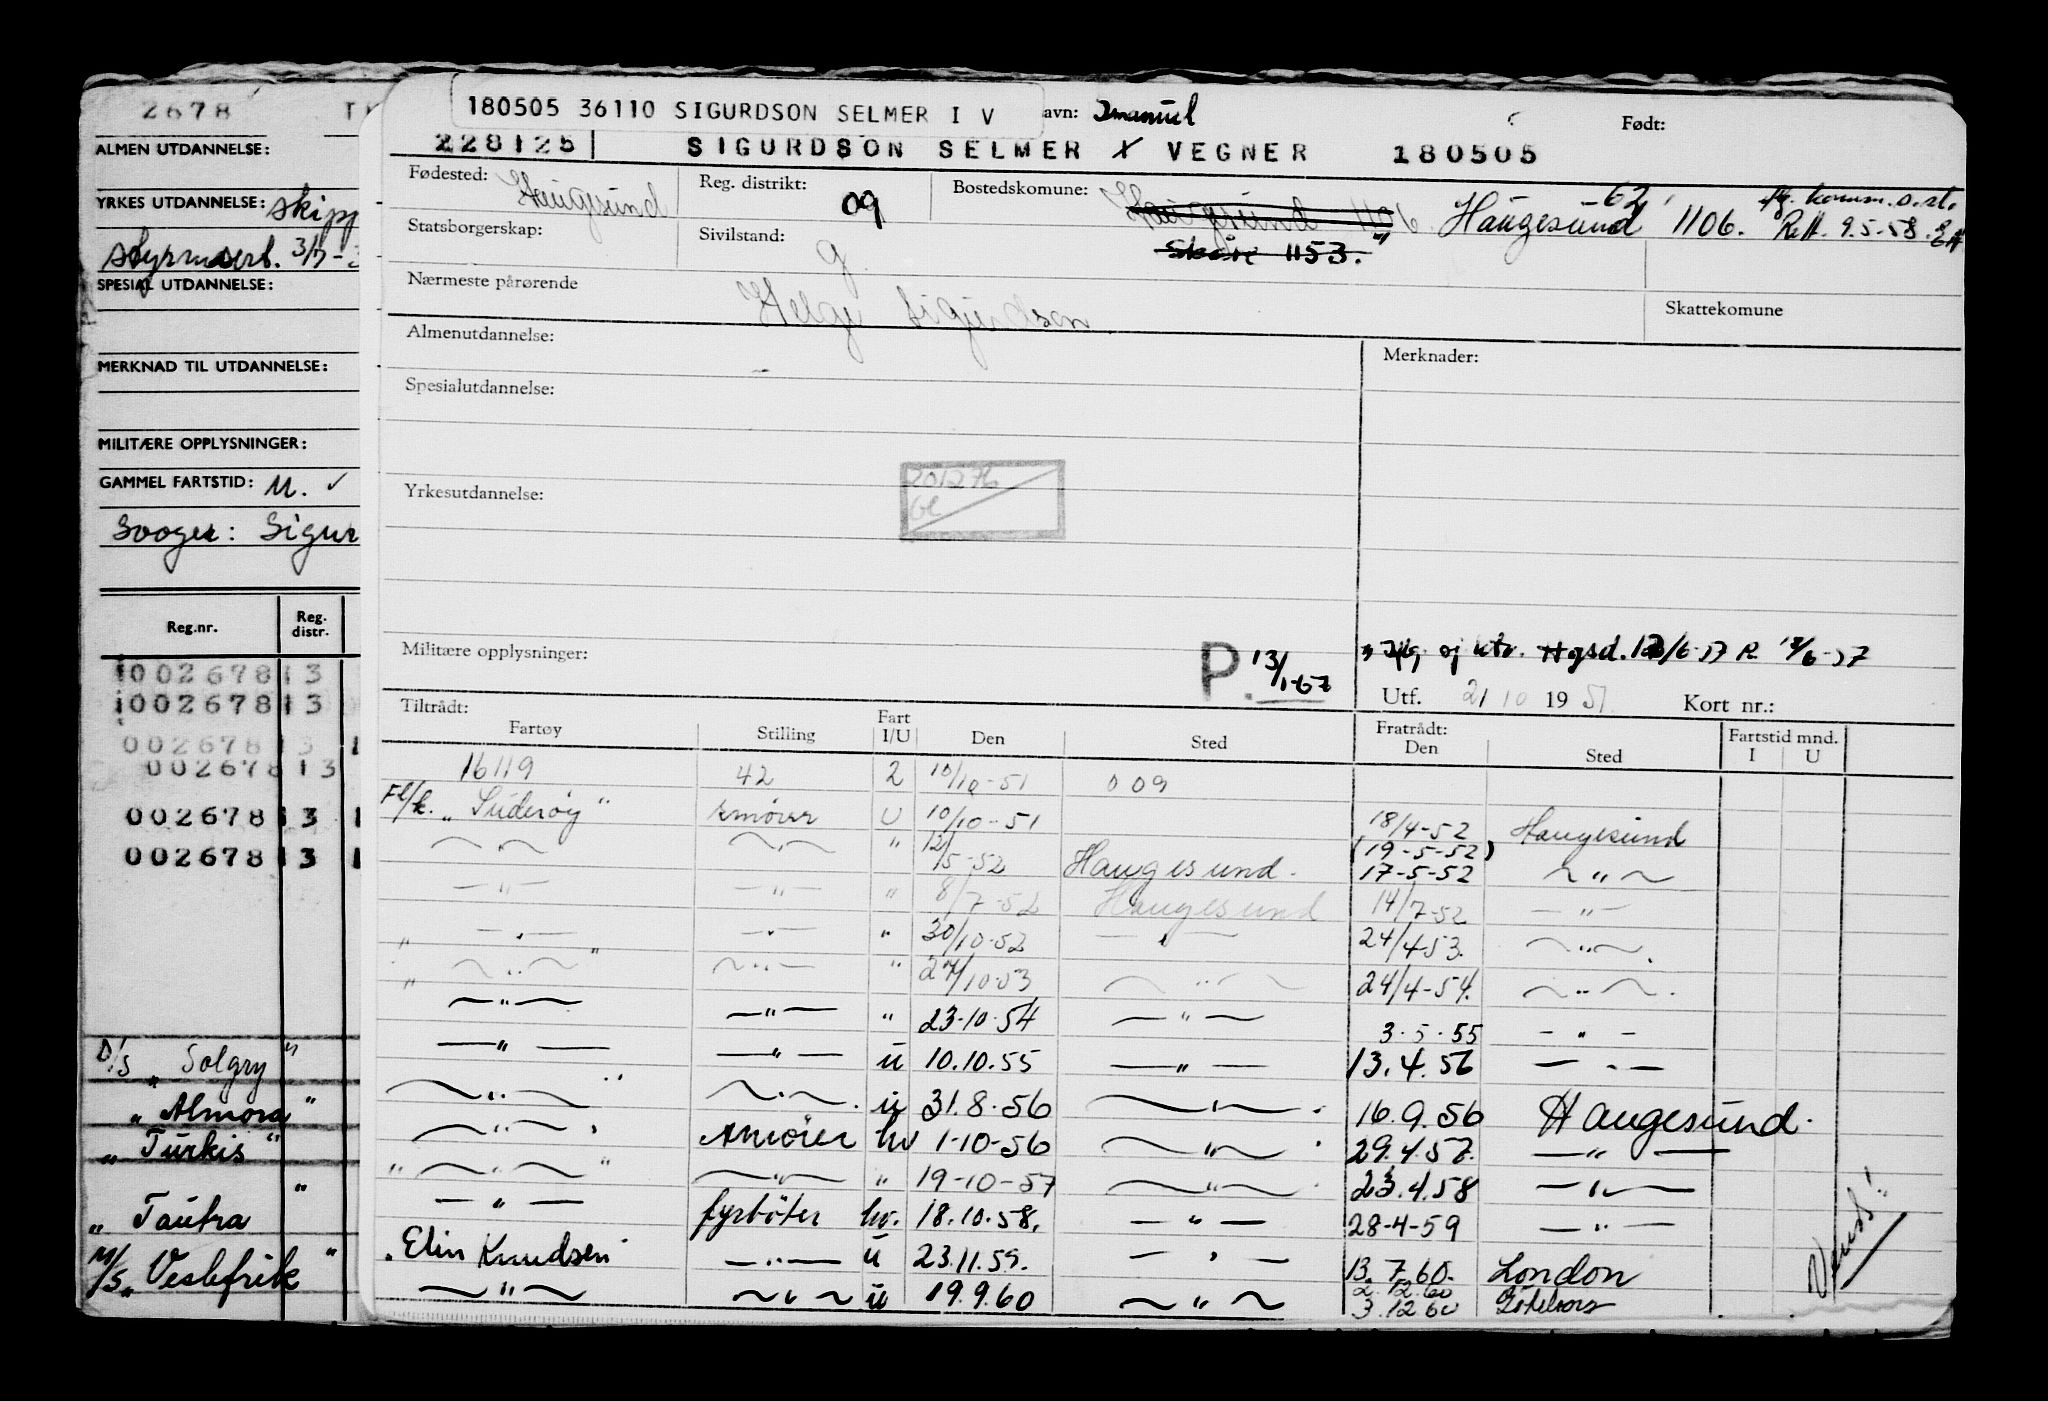 2678
ALMEN UTDANNELSE:
YRKES UTDANNELSE: skipp
styrmserb. 3/7-3
SPESIAL UTDANNELSE:
MERKNAD TIL UTDANNELSE:
MILITÆRE OPPLYSNINGER:
GAMMEL FARTSTID: U. ✓
Svoger: Sigur
Reg.nr. Reg. distr.
i002678 13
i002678 13
002678 13 1
002678 13
002678 13 1
002678 13 1
D/S „Solgry"
„Almora"
„Turkis"
„Tautra"
M/S „Veslefrik"
180505 36110 SIGURDSON SELMER I V avn: Imanuel Født:
228125 SIGURDSON SELMER X VEGNER 180505
Fødested: Haugesund Reg. distrikt: 09 Bostedskomune: Haugesund 1106 Haugesund -62, 1106. flg. komm.s.st.
Rett. 9.5-58.
Skåre 1153."
Statsborgerskap: Sivilstand: g
Nærmeste pårørende Helge Sigurdson Skattekomune
Almenutdannelse: Merknader:
Spesialutdannelse:
201276
Yrkesutdannelse:
Militære opplysninger: P. 13/1-67 Hgsd. 12/6-57 R 17/6-57
Utf. 21 10 1951 Kort nr.:
Tiltrådt: Fratrådt: Fartstid mnd.
Fartøy Stilling Fart I/U Den Sted Den Sted I U
16119 42 2 10/10-51 009
Fl/k. „Suderøy" smører U 10/10-51 18/4-52 Haugesund
(19-5-52)
— " — — " — " 12/5-52 Haugesund. 17-5-52 — " —
— " — — " — " 8/7-52 Haugesund 14/7-52 — " —
" — " — " — " — " 30/10-52 — " — 24/4-53. — " —.
" — " — — " — " 27/10-53 — " — 24/4-54. — " —.
— " — — " — " 23-10-54 — " — 3-5-55 — " —
— " — — " — u 10.10.55 — " — 13.4.56 — " —
— " — " — " —. u 31.8-56 — " —. 16.9.56 Haugesund.
— " —. smører hv 1-10-56 — " —. 29.4.57. — " —
" — " — " — " — " 19-10-57 — " —. 23.4.58 — " —
— " — fyrbøter hv. 18.10.58. — " — 28-4-59 — " —
„Elin Knudsen" — " — u 23.11.59. — " — 13.7.60. London
2.12.60
— " — — " — u 19.9.60 — " — 3.12.60 Göteborg
Vend!